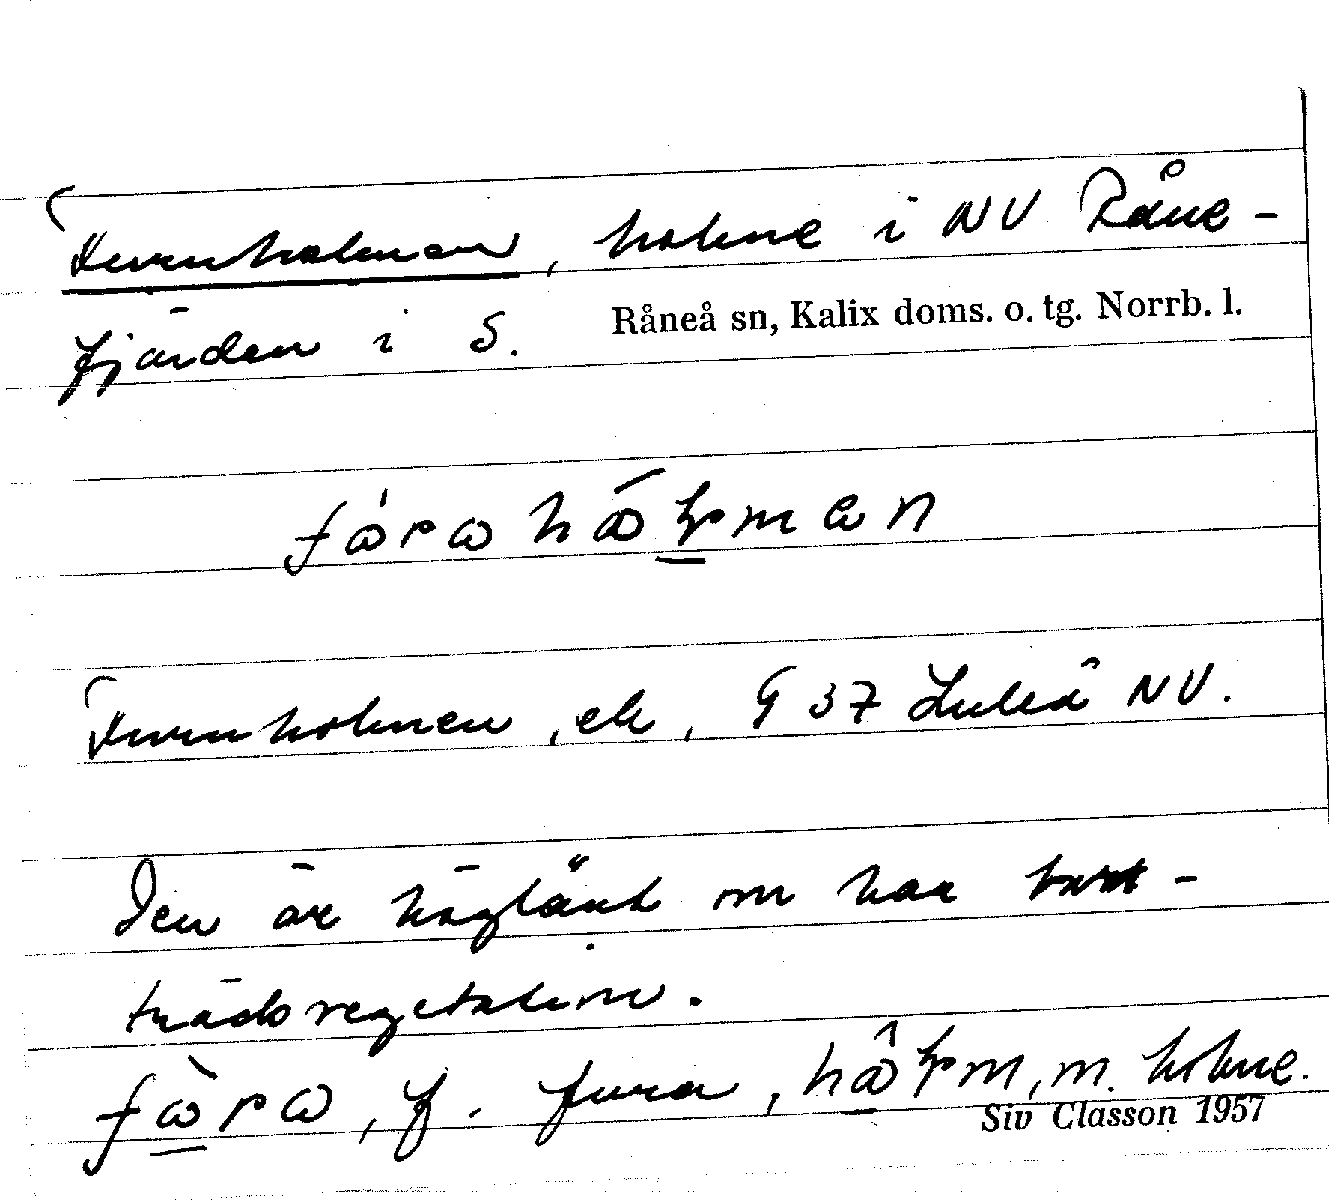 Furuholmen, holme i NV Råne-
fjärden i S. Råneå sn, Kalix doms. o. tg. Norrb. l.
Furuholmen, ek, 9 37 Luleå NV.
Den är höglänt m har barr-
trädsvegetation.
f. fura, m. holme.
Siv Classon 1957